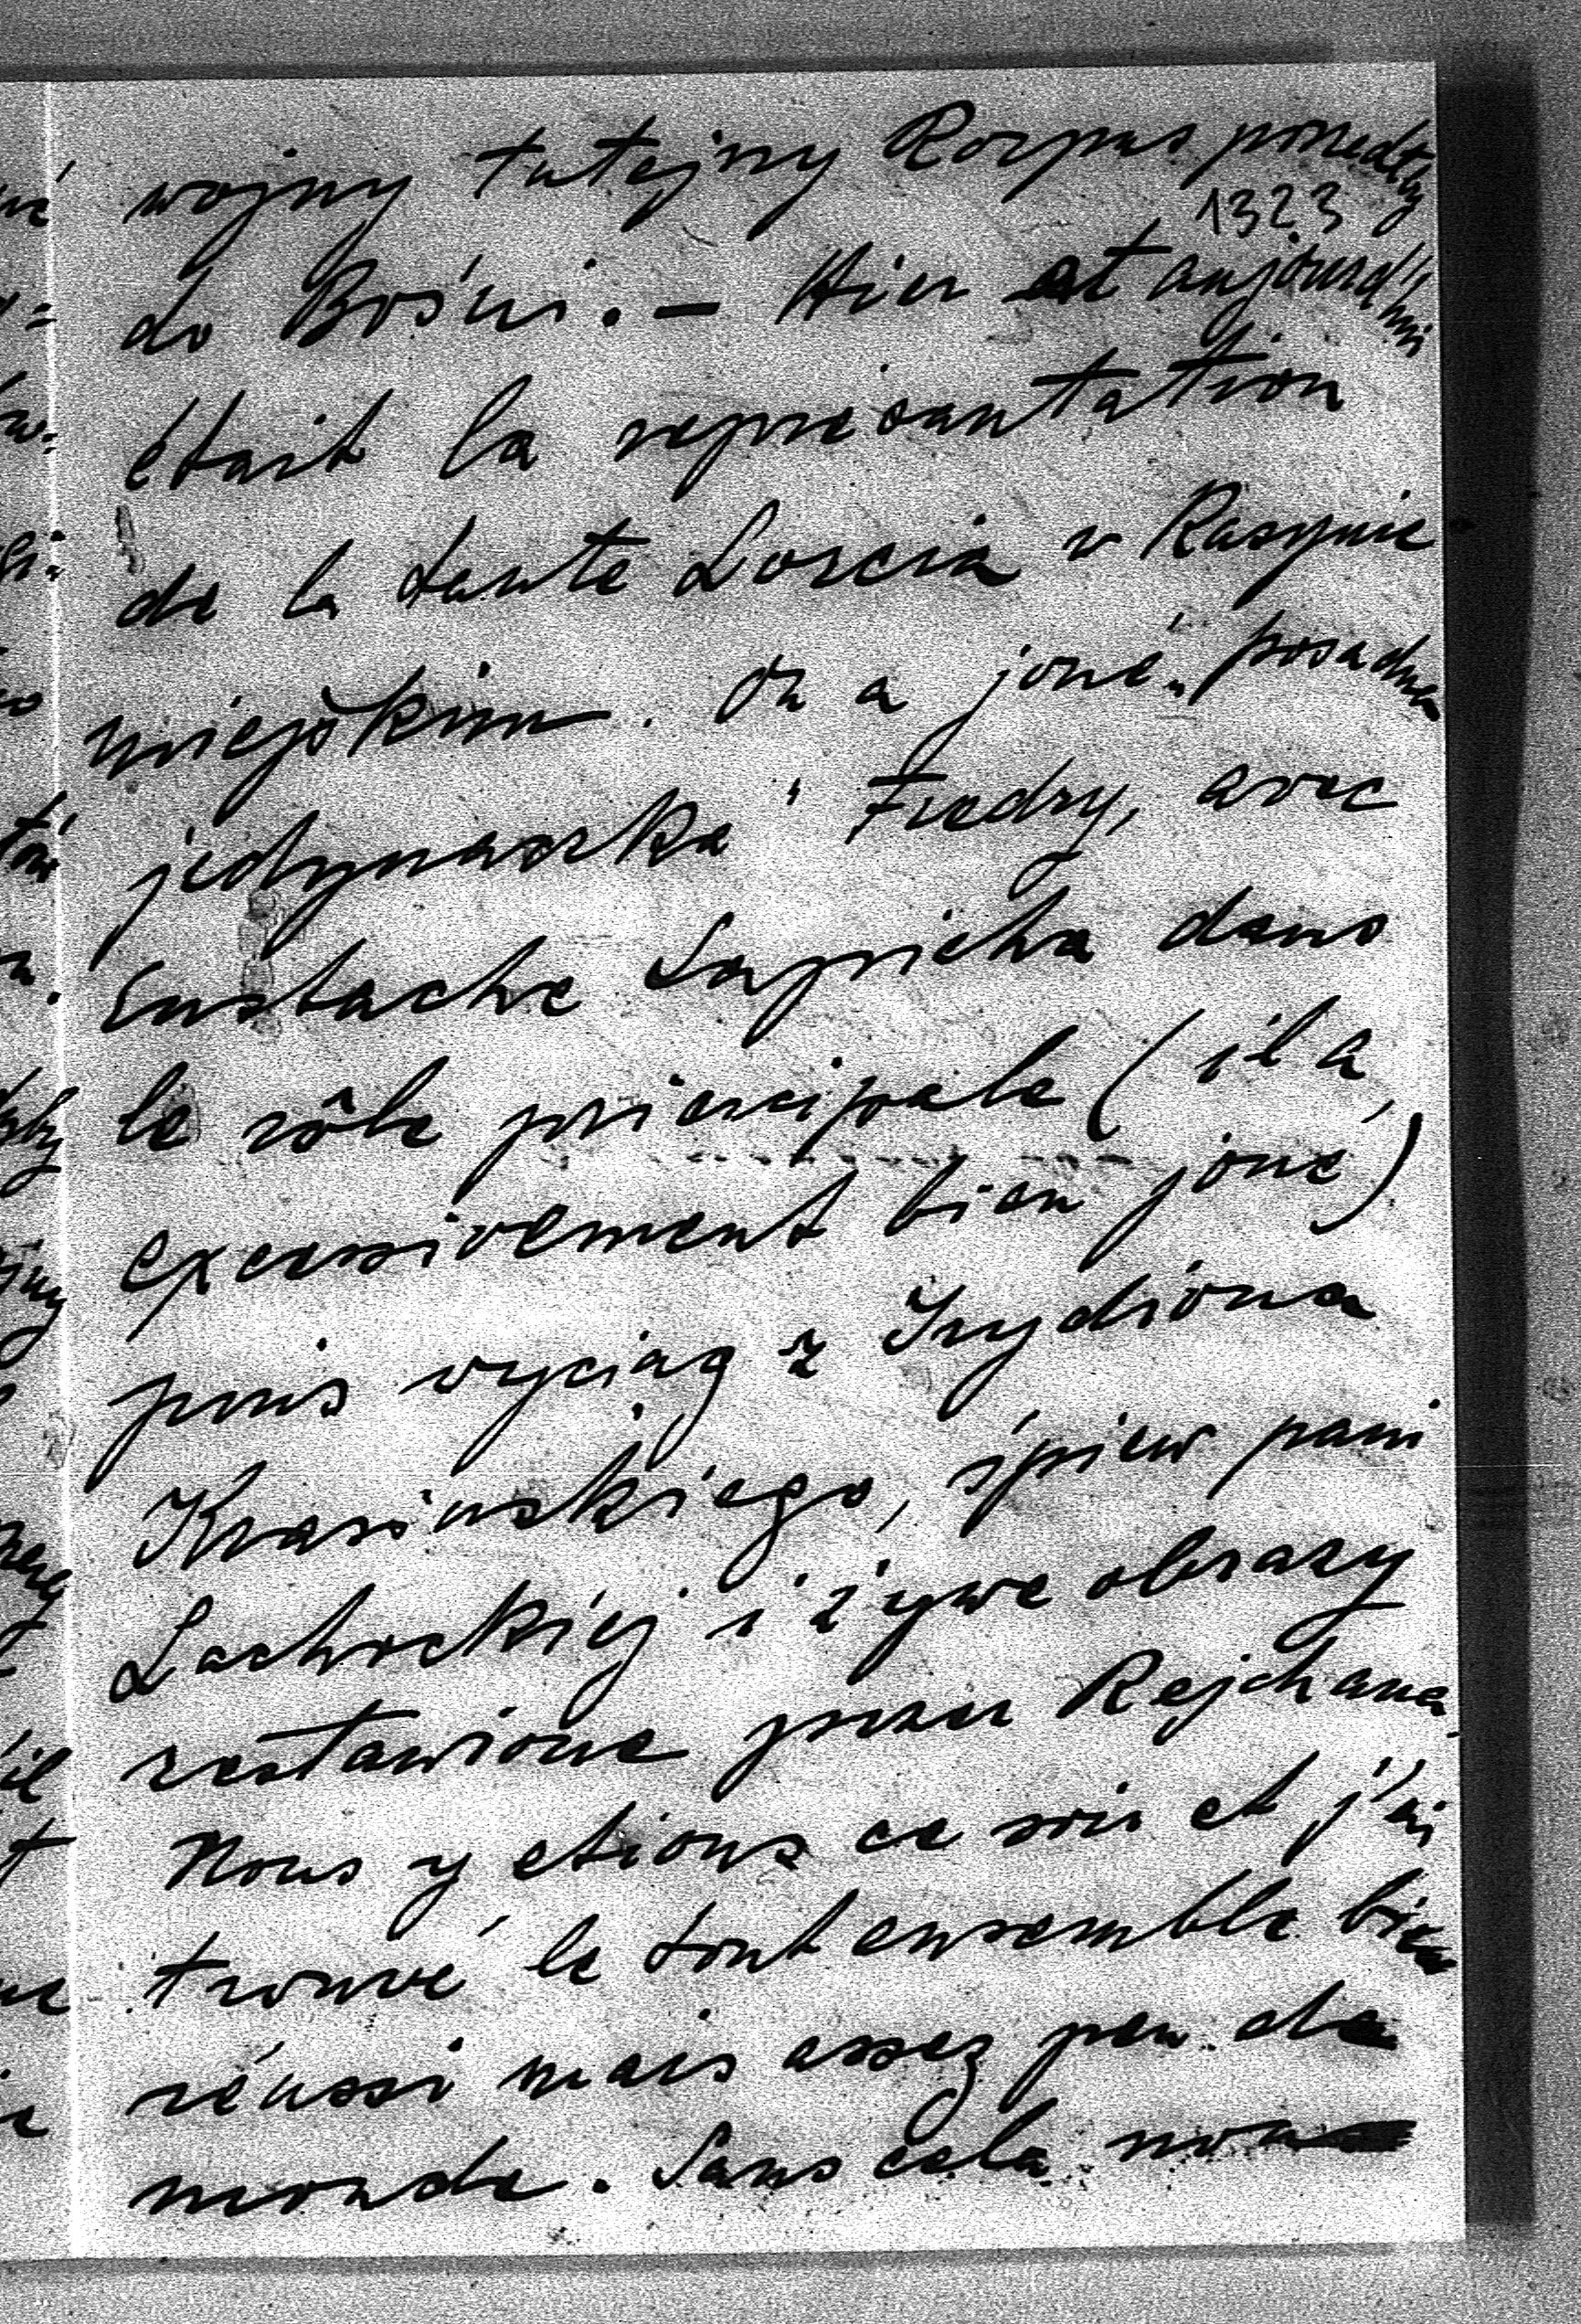 wojny tutejszy Korpus poszedłby
1323
do Bośni. — Hier et aujourd'hui
était la represantation
de la tante Lorcia w Kasynie
miejskim. On a joué „posadna
jedynaczka" Fredry, avec
Eustache Sapieha dans
le rôle principale (il a
excessivement bien joué)
puis wyciąg z Irydiona
Krasinskiego, śpiew pani
Lachockiéj i żywe obrazy
zestawione przez Rejchana.
Nous y etions ce soir et j'ai
trouvé le tout ensemble bien
réussi mais assez peu de
monde. Sans cela